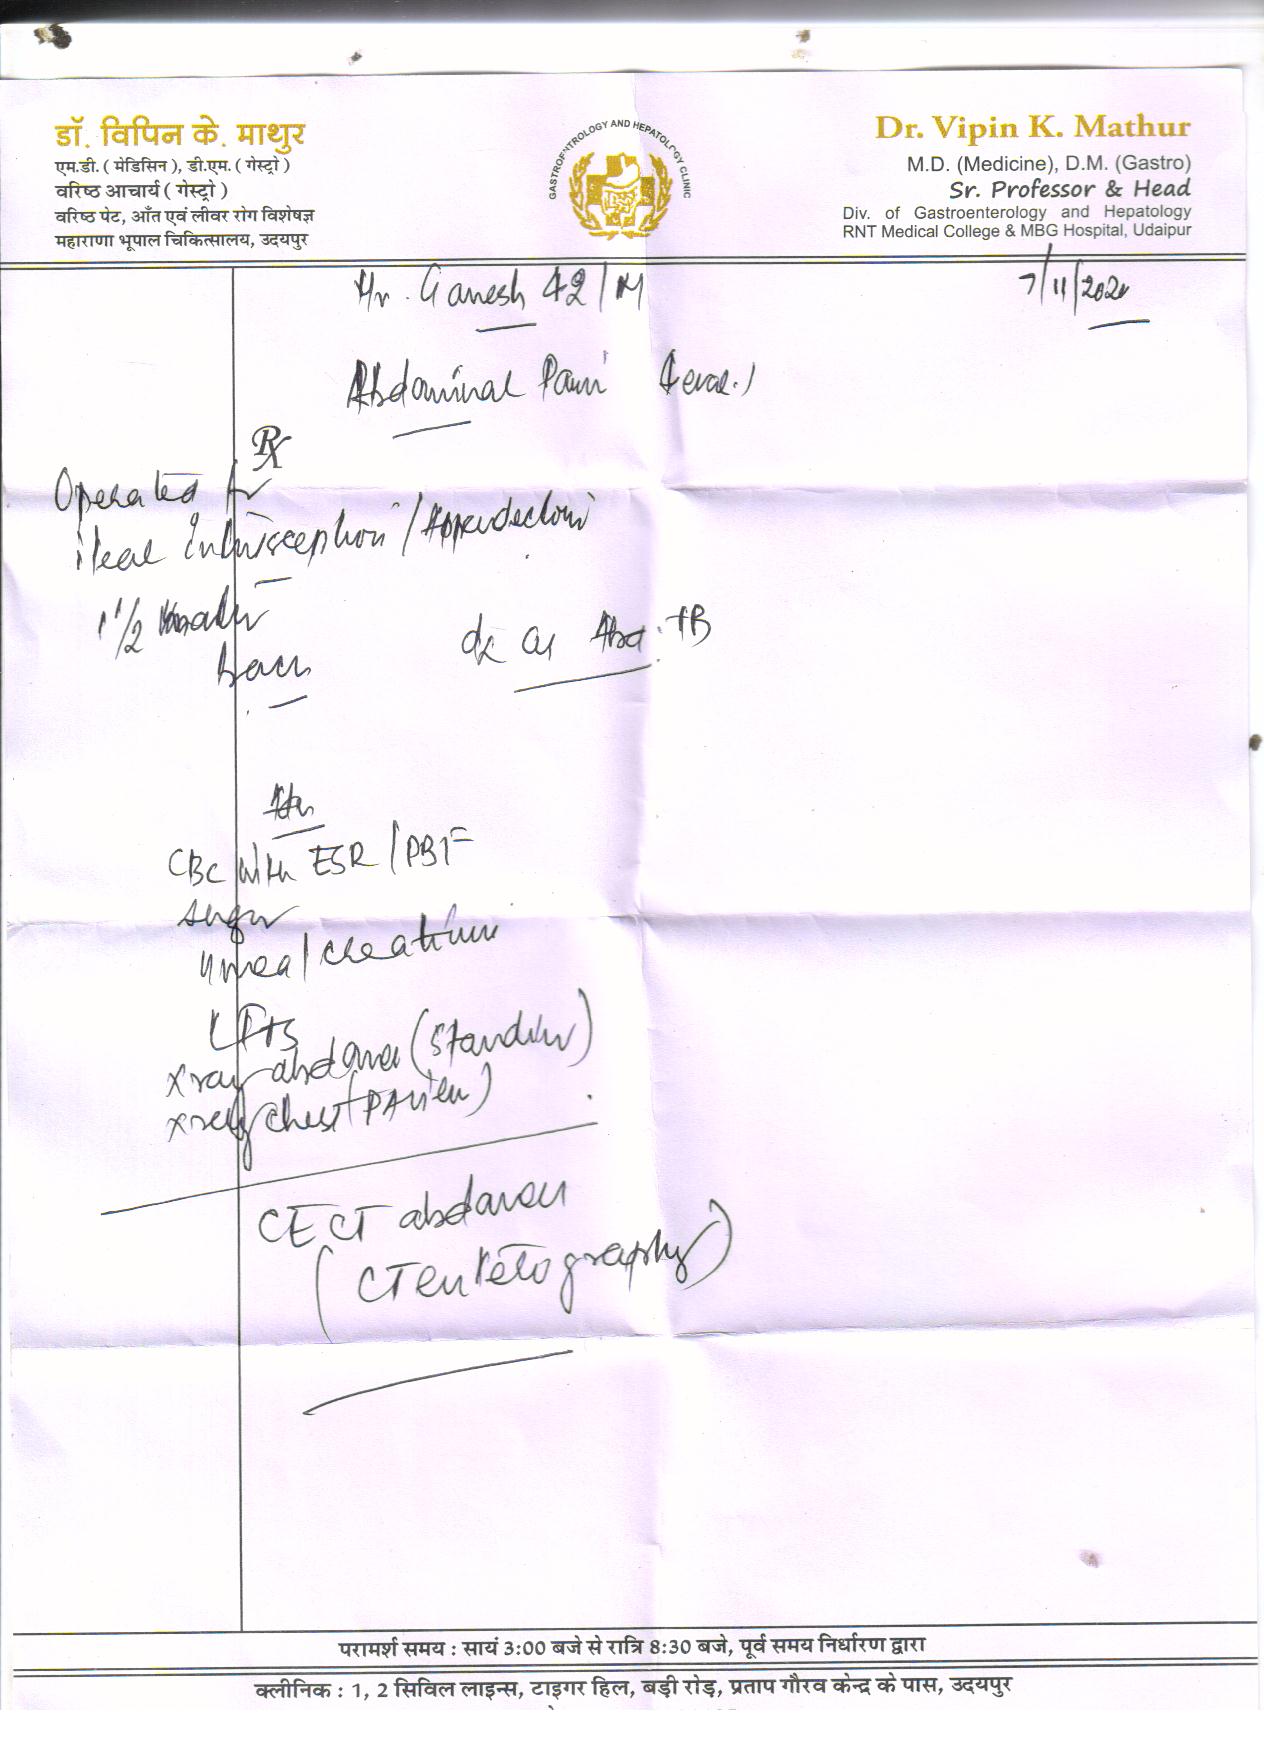 डॉ. विपिन के. माथुर
एम.डी. ( मेडिसिन ), डी.एम. ( गेस्ट्रो )
वरिष्ठ आचार्य ( गेस्ट्रो )
वरिष्ठ पेट, आँत एवं लीवर रोग विशेषज्ञ
महाराणा भूपाल चिकित्सालय, उदयपुर
GASTROENTROLOGY AND HEPATOLOGY CLINIC
Dr. Vipin K. Mathur
M.D. (Medicine), D.M. (Gastro)
Sr. Professor & Head
Div. of Gastroenterology and Hepatology
RNT Medical College & MBG Hospital, Udaipur
Mr. Ganesh 42/M
7/11/2020
Abdominal Pain
Rx
Operated for
ileal Intussception/Appendectomi
1 1/2 
back
Abd. TB
CBC with ESR/PBF
sugar
Urea/creatinine
LFTs
X ray abdomen (Standing)
X ray chest (PA view)
CECT abdomen
(CT enterography)
परामर्श समय : सायं 3:00 बजे से रात्रि 8:30 बजे, पूर्व समय निर्धारण द्वारा
क्लीनिक : 1, 2 सिविल लाइन्स, टाइगर हिल, बड़ी रोड़, प्रताप गौरव केन्द्र के पास, उदयपुर